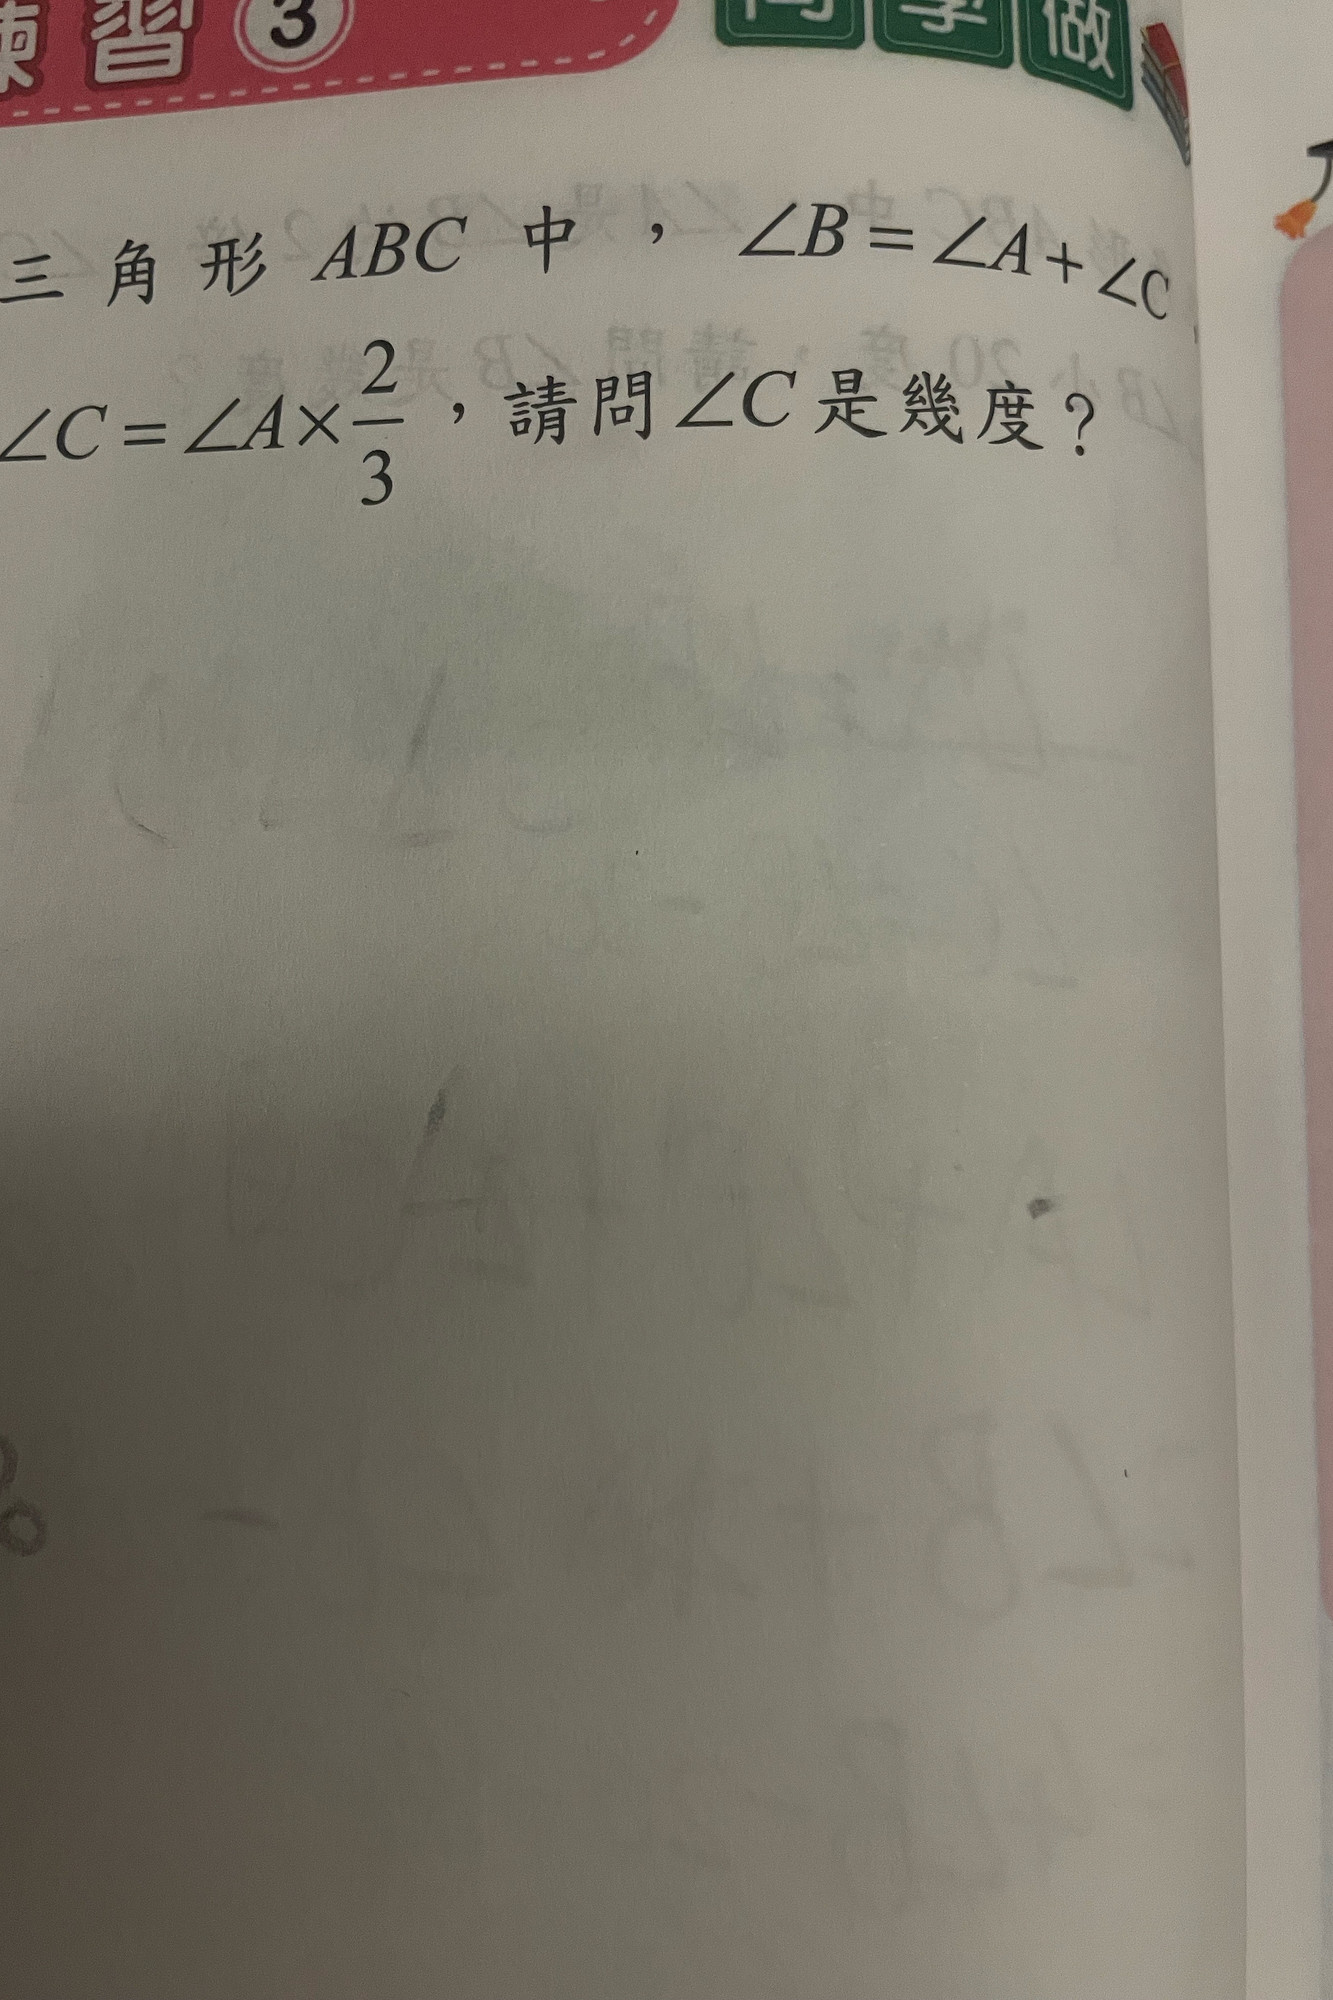 練習 3 同學做
三角形 ABC 中，∠B = ∠A + ∠C，
∠C = ∠A × 2/3，請問 ∠C 是幾度？